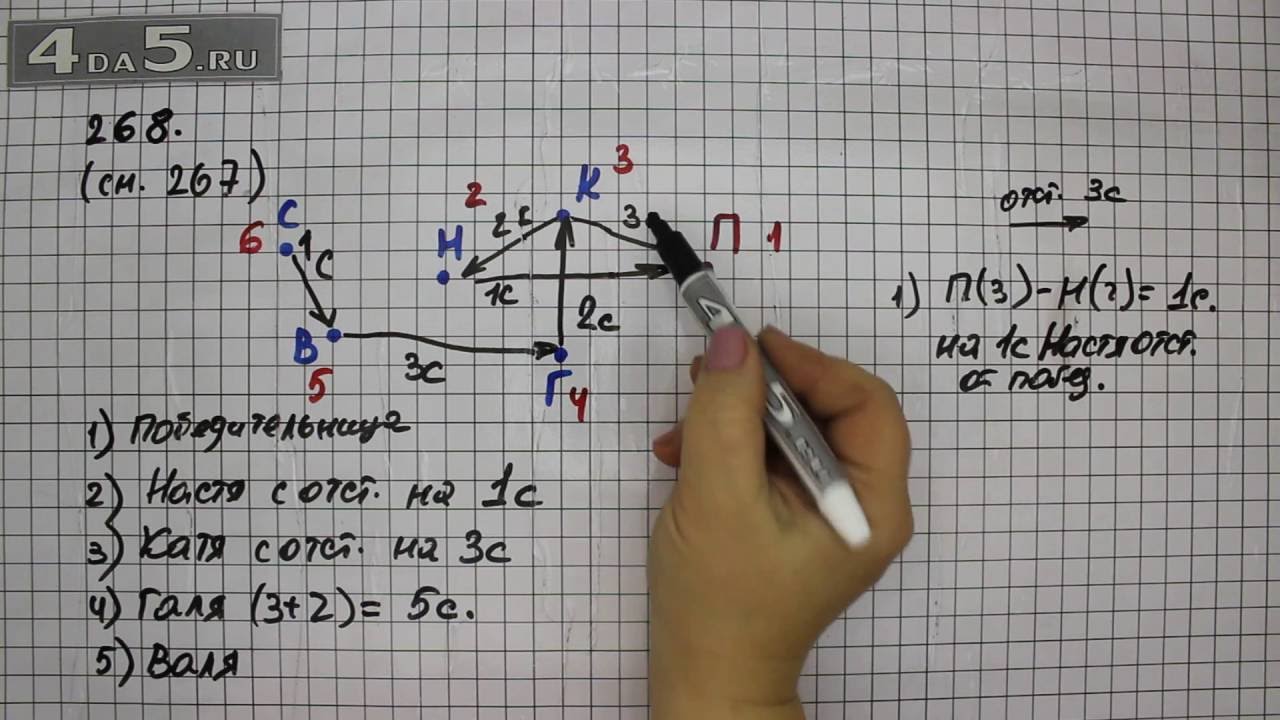 4DA5.RU
268.
(см. 267)
К 3
2
2с
3
Н
П 1
С
6
1с
1с
2с
В
5
3с
Г 4
отст. 3с
1) П(3) - Н(2) = 1с.
на 1с Настя отст.
от побед.
1) Победительница
2) Настя с отст. на 1с
3) Катя с отст. на 3с
4) Галя (3+2) = 5с.
5) Валя